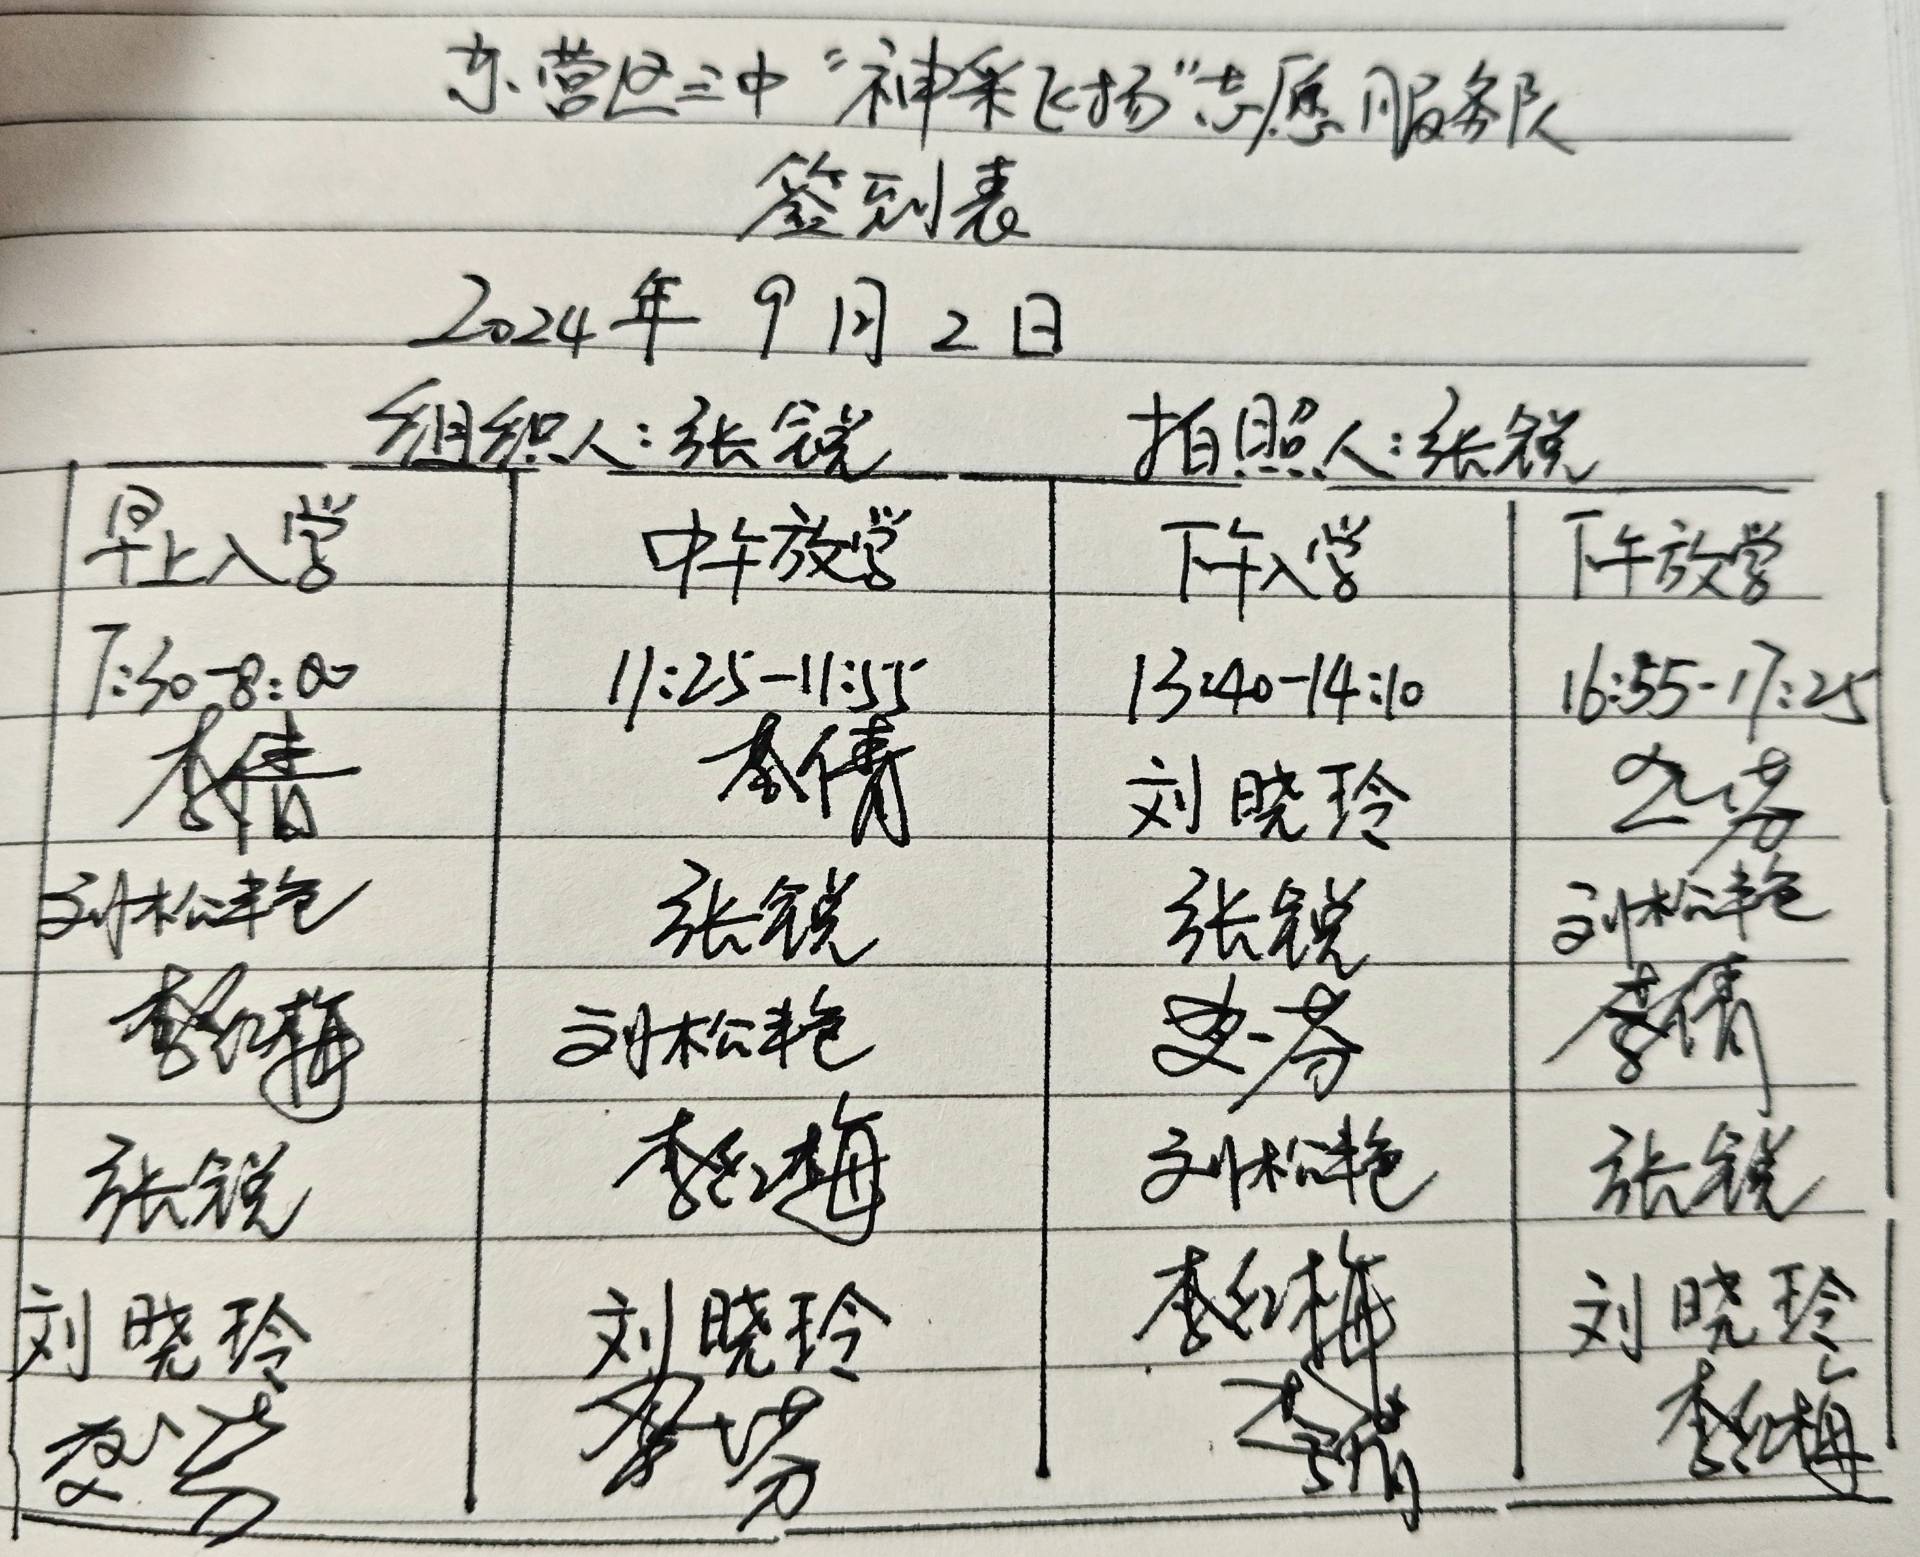 东营区三中“神采飞扬”志愿服务队
签到表
2024年9月2日
组织人:张锐 拍照人:张锐
早上入学 中午放学 下午入学 下午放学
7:30-8:00 11:25-11:55 13:40-14:10 16:55-17:25
李倩 李倩 刘晓玲
刘松艳 张锐 张锐 刘松艳
李红梅 刘松艳 李倩
张锐 李红梅 刘松艳 张锐
刘晓玲 刘晓玲 李红梅 刘晓玲
李倩 李红梅